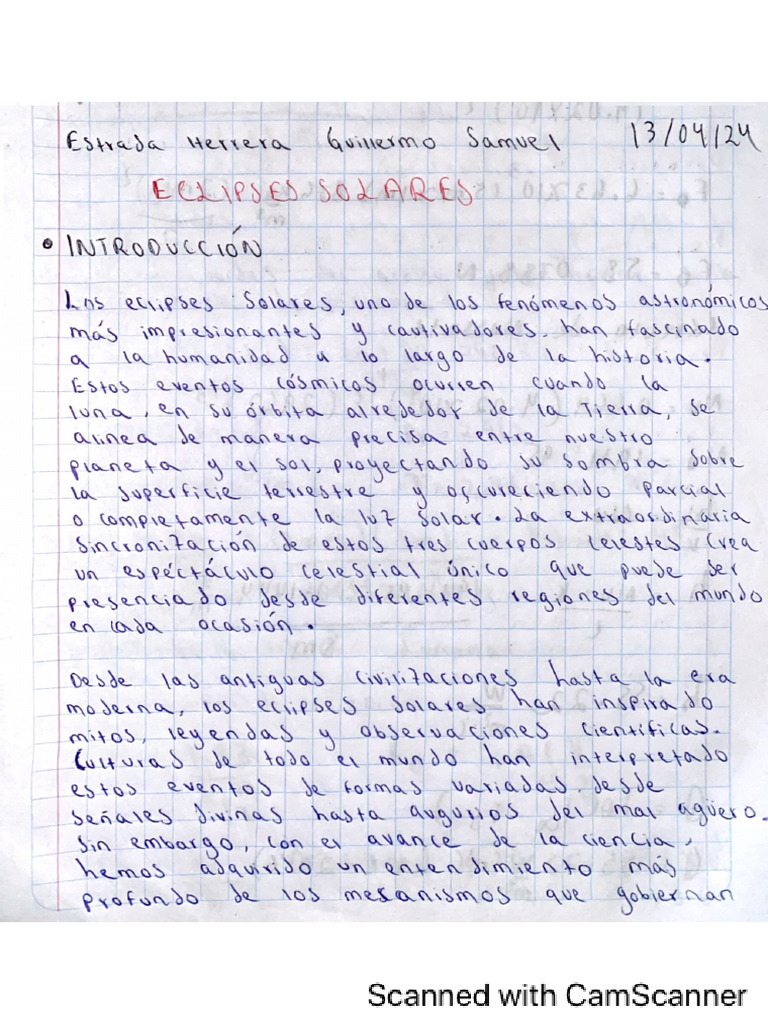 Estrada Herrera Guillermo Samuel 13/04/24
ECLIPSES SOLARES
• INTRODUCCIÓN
Los eclipses Solares, uno de los fenómenos astronómicos
más impresionantes y cautivadores, han fascinado
a la humanidad a lo largo de la historia.
Estos eventos cósmicos ocurren cuando la
luna, en su órbita alrededor de la Tierra, se
alinea de manera precisa entre nuestro
planeta y el sol, proyectando su sombra sobre
la superficie terrestre y oscureciendo parcial
o completamente la luz solar. La extraordinaria
sincronización de estos tres cuerpos celestes crea
un espéctáculo celestial único que puede ser
presenciado desde diferentes regiones del mundo
en cada ocasión.
Desde las antiguas civilizaciones hasta la era
moderna, los eclipses solares han inspirado
mitos, leyendas y observaciones científicas.
Culturas de todo el mundo han interpretado
estos eventos de formas variadas, desde
señales divinas hasta augurios del mal agüero.
Sin embargo, con el avance de la ciencia,
hemos adquirido un entendimiento más
profundo de los mecanismos que gobiernan
Scanned with CamScanner